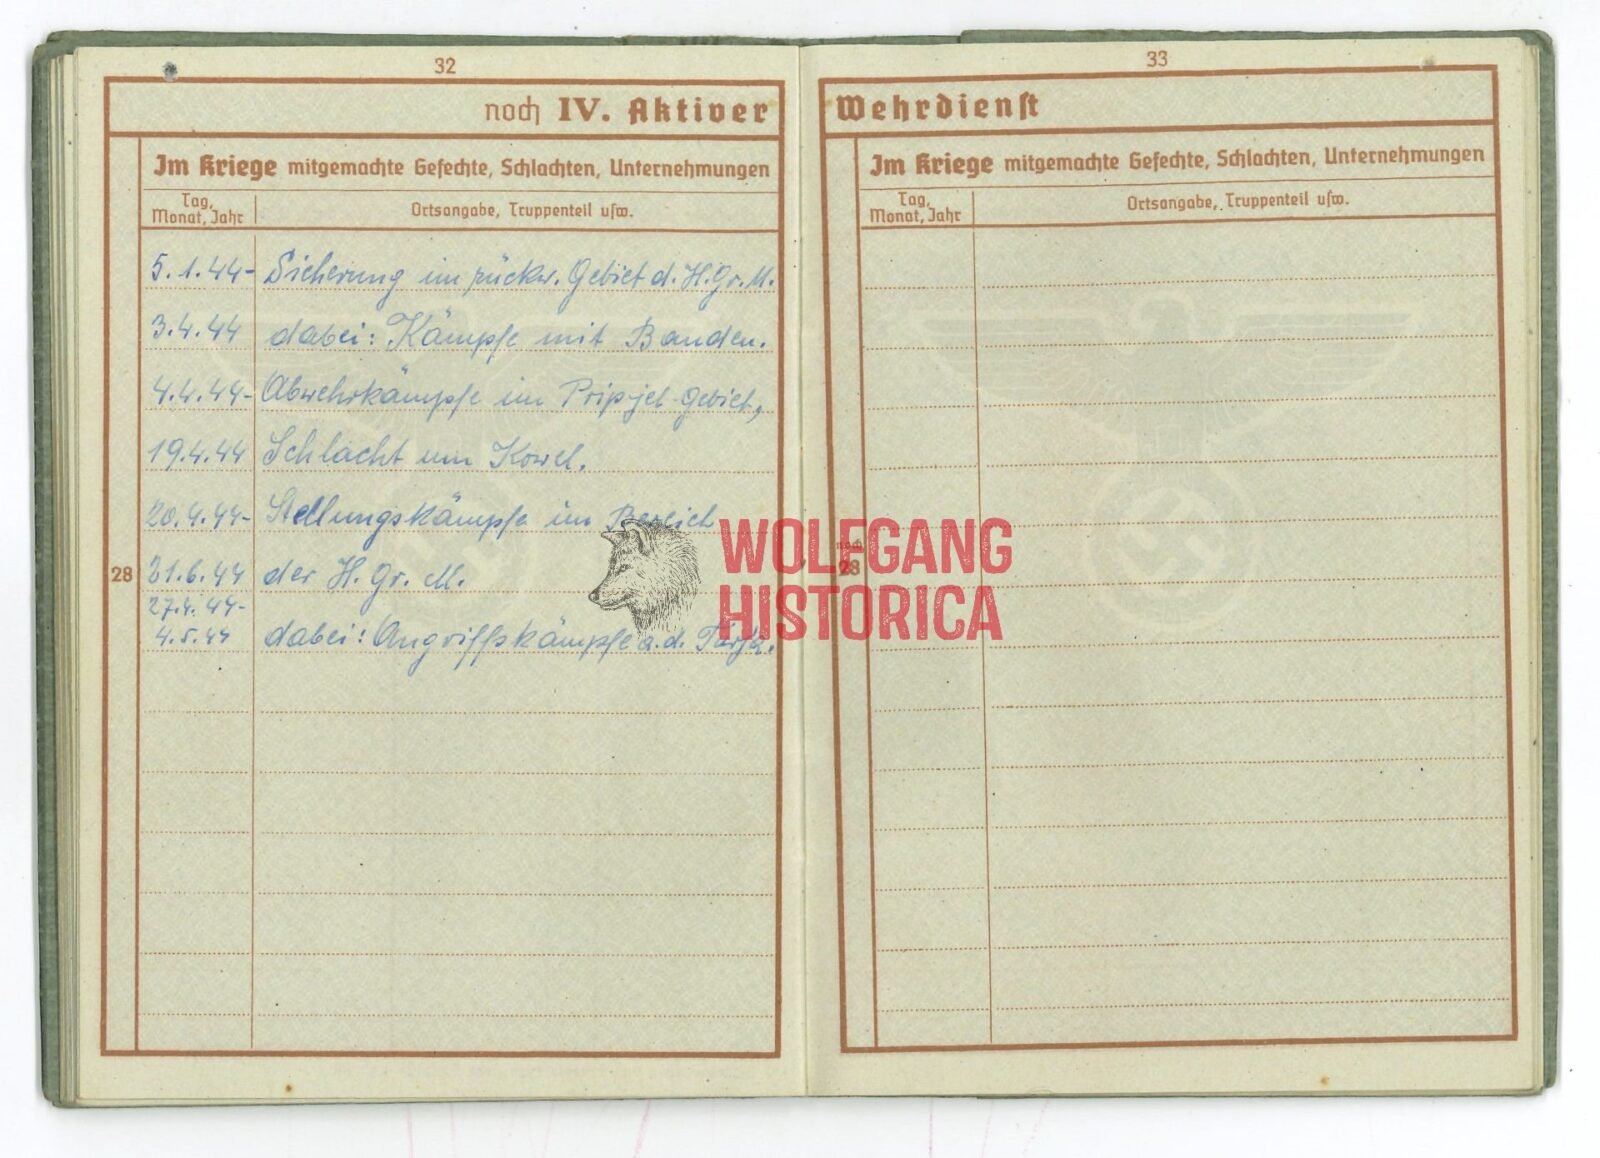 32
noch IV. Aktiver
Im Kriege mitgemachte Gefechte, Schlachten, Unternehmungen
Tag, Monat, Jahr
Ortsangabe, Truppenteil usw.
5.1.44- Sicherung im rückw. Gebiet d. H.Gr.M.
3.4.44 dabei: Kämpfe mit Banden.
4.4.44- Abwehrkämpfe im Pripjet-Gebiet,
19.4.44 Schlacht um Kowel.
20.4.44- Stellungskämpfe im Bereich
28 21.6.44 der H.Gr.M.
27.4.44-
4.5.44 dabei: Angriffskämpfe a.d.
33
Wehrdienst
Im Kriege mitgemachte Gefechte, Schlachten, Unternehmungen
Tag, Monat, Jahr
Ortsangabe, Truppenteil usw.
noch
28
WOLFGANG
HISTORICA